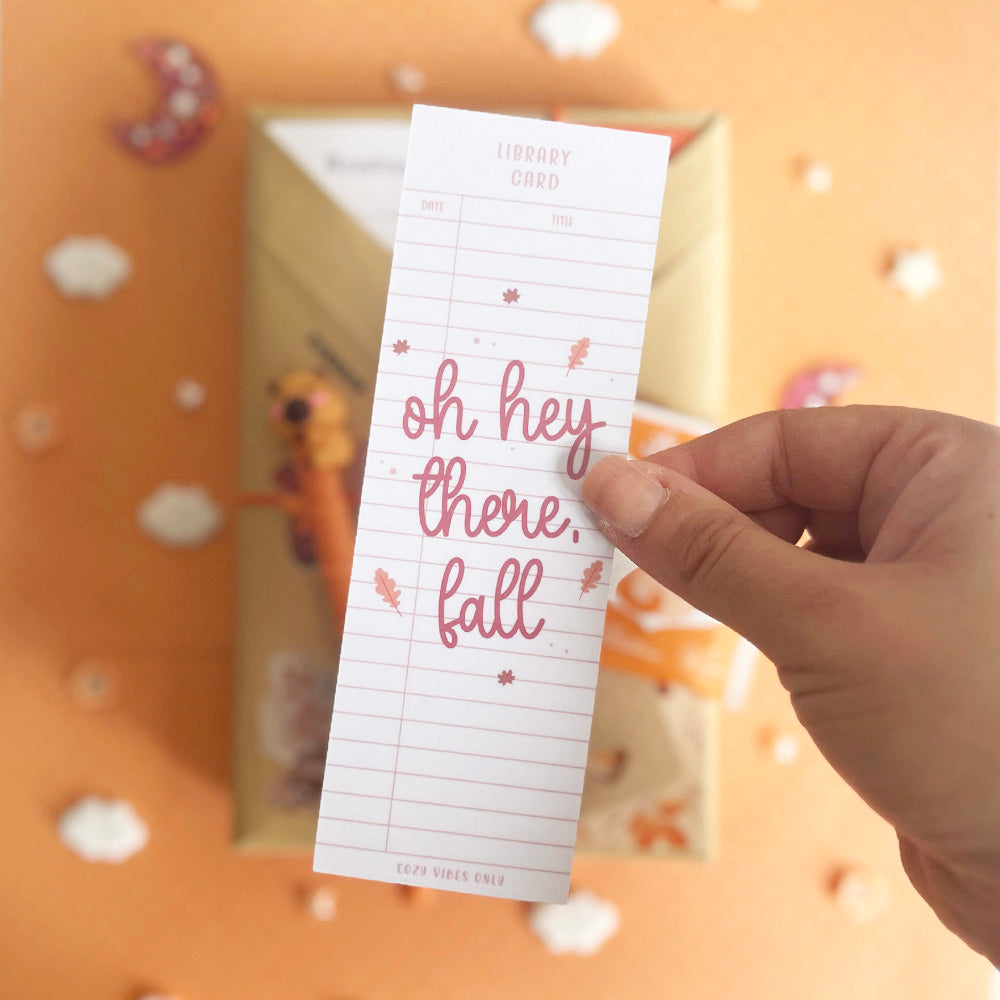 LIBRARY
CARD
DATE TITLE
oh hey
there,
fall
COZY VIBES ONLY